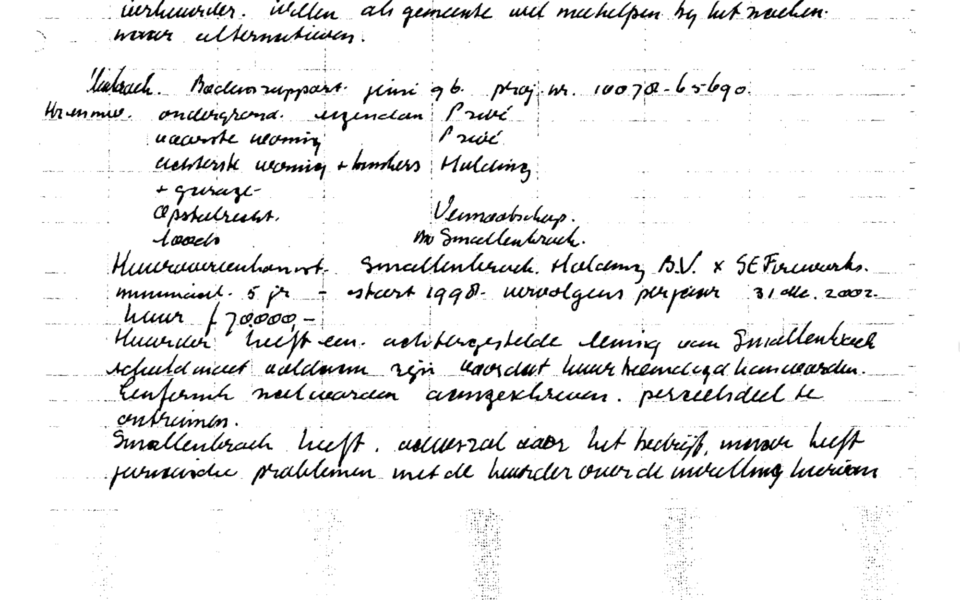 verhuurder. Willen als gemeente wel meehelpen bij het zoeken
naar alternatieven.
Bodemrapport juni 96. proj. nr. 10078-65690.
ondergrond. eigendom Privé
voorste woning Privé
achterste woning + bunkers Holding
+ garage
opstalrecht. Vennootschap.
loods Smallenbroek.
Huurovereenkomst. Smallenbroek Holding B.V. x SE Fireworks.
minimaal 5 jr - start 1998. vervolgens per jaar 31 dec. 2002.
huur f 70.000,-
Huurder heeft een achtergestelde lening van Smallenbroek
schuld moet voldaan zijn voordat huur beeindigd kan worden.
Eenformik zal worden aangeschreven. perceelsdeel te
ontruimen.
Smallenbroek heeft voor het bedrijf, maar heeft
juridische problemen met de huurder over de invulling hiervan